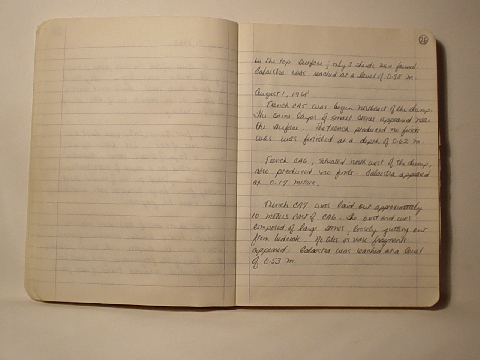 26
in the top surface; only 2 sherds were found.
Calastra was reached at a level of 0.38 m.
August 1, 1968
Trench CA5 was begun northeast of the dump.
The same layer of small stones appeared near
the surface. The trench produced no finds
was finished at a depth of 0.62 m.
Trench CA6, situated north west of the dump,
also produced no finds. Calastra appeared
at 0.17 metre.
Trench CA7 was laid out approximately
10 meters East of CA6. The east end was
composed of large stones, loosely jutting out
from bedrock. No tiles or vase fragments
appeared. Calastra was reached at a level
of 0.53 m.